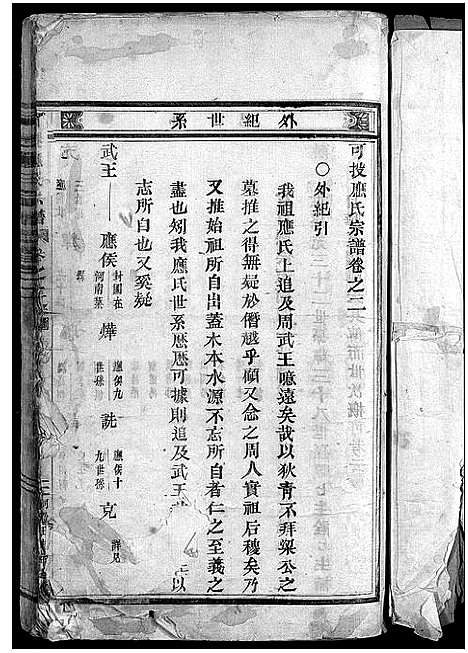 外紀世系
可投應氏宗譜卷之二
○外紀引
我祖應氏上追及周武王噫遠矣哉以狄青不拜梁公之
墓推之得無疑於僭越乎顧又念之周人實祖后稷矣乃
又推始祖所自出蓋木本水源不忘所自者仁之至義之
盡也矧我應氏世系厯厯可據則追及武王
以
志所自也又奚疑
武王
應侯
封國在
河南葉
燁
應侯九
世孫
詵
應侯十
九世孫
克
詳見